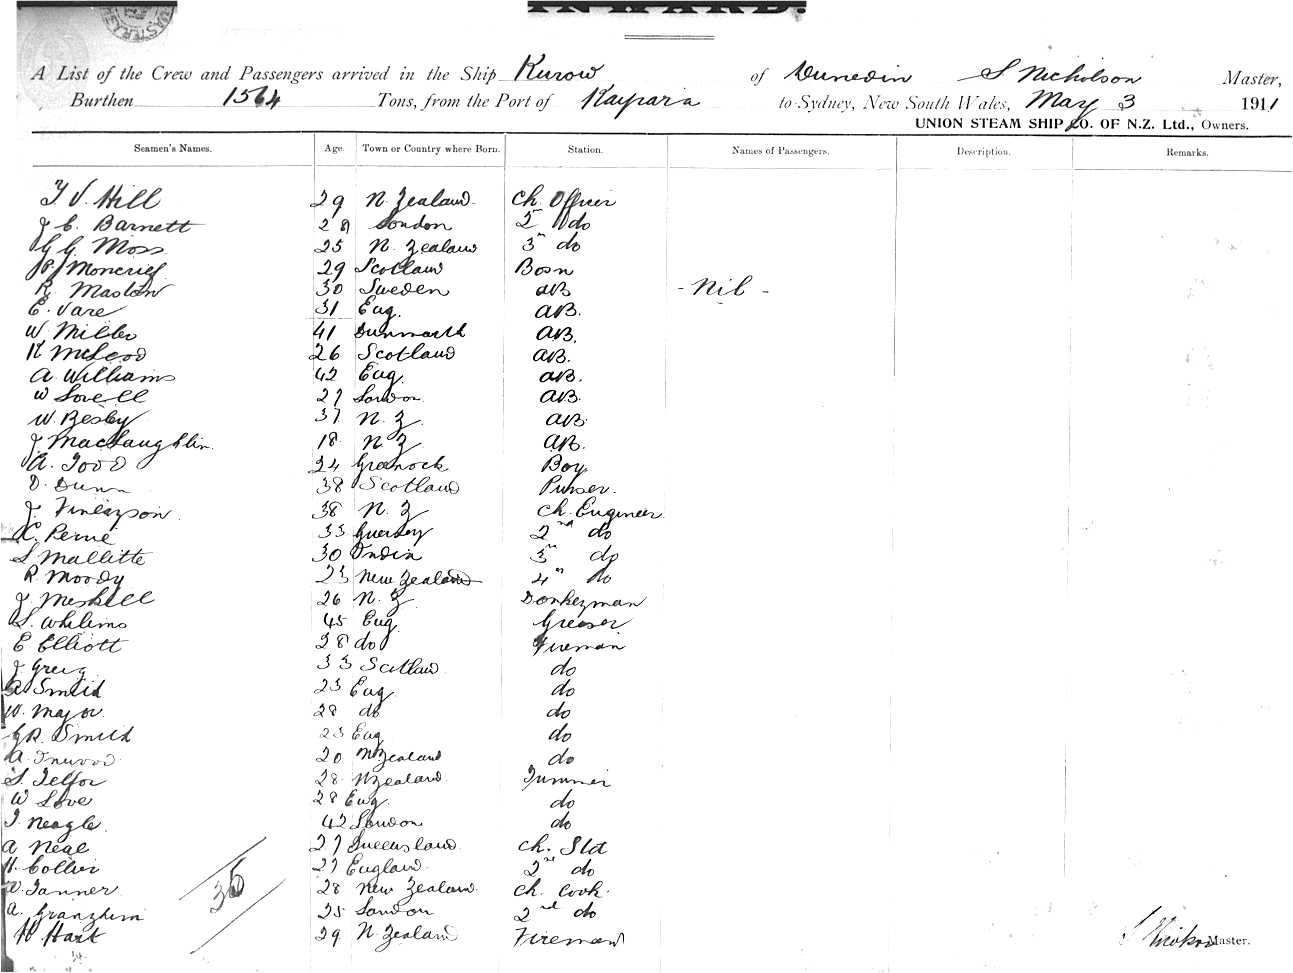 INWARD.
A List of the Crew and Passengers arrived in the Ship Kurow of Dunedin S Nicholson Master,
Burthen 1564 Tons, from the Port of Kaipara to Sydney, New South Wales, May 3 1911
UNION STEAM SHIP CO. OF N.Z. Ltd., Owners.
Seamen's Names. Age. Town or Country where Born. Station. Names of Passengers. Description. Remarks.
Hill 29 N. Zealand Ch. Officer
C. Barnett 28 London 2nd do
G Moss 25 N. Zealand 3rd do
Moncrief 29 Scotland Bosn
R. 30 Sweden AB - Nil -
E. Vare 31 Eng. AB.
W. Miller 41 Dunmark AB.
McLeod 26 Scotland AB.
A Williams 42 Eng. AB.
W Lovell 27 London AB.
W. Besby 37 N. Z. AB
J. MacLaughlin 18 N Z. AB.
A. Todd 24 Greenock Boy
D. Dunn 38 Scotland Purser.
J. Finlayson 38 N. Z Ch. Engineer
33 Guernsey 2nd do
S Mallitte 30 India 3rd do
R. Moody 23 New Zealand 4th do
J. Meskell 26 N. Z Donkeyman
S. 45 Eng Greaser
E Elliott 28 do Fireman
J Greig 33 Scotland do
A Smith 23 Eng do
W. Major 28 do do
G R. Smith 23 Eng do
A 20 N Zealand do
S. Telfor 28 N Zealand Trimmer
W Love 28 Eng do
T. Neagle 42 London do
A Neal 27 Queensland Ch. Std
H. Collier 27 England 2nd do
Tanner 28 New Zealand. Ch. Cook
A. 25 London 2nd do
H. Hart 29 N. Zealand Fireman
35
S Nicholson Master.